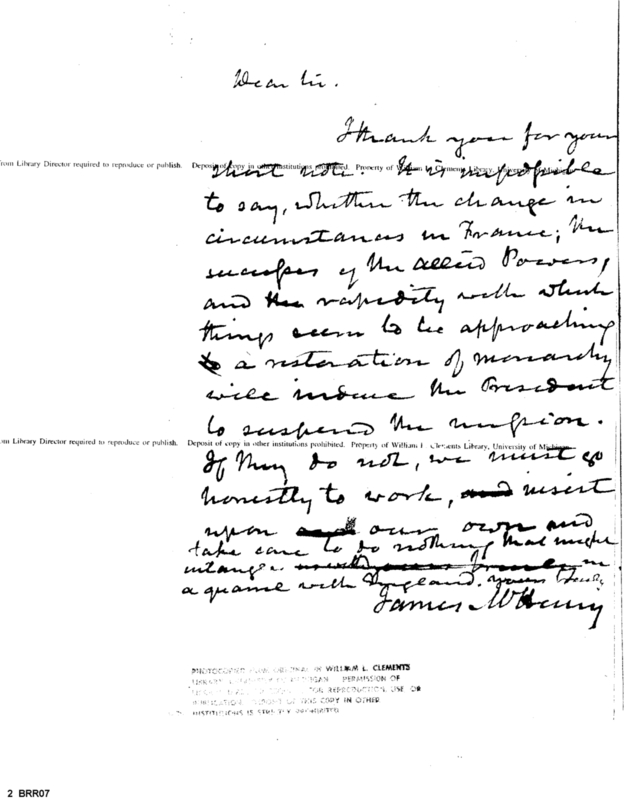 Dear Sir.
I thank you for your
from Library Director required to reproduce or publish. Deposit of copy in other institutions prohibited. Property of William L. Clements Library, University of Michigan.
short note. It is impossible
to say, whether the change in
circumstances in France; the
successes of the Allied Powers,
and the rapidity with which
things seem to be approaching
to a restoration of monarchy
will induce the President
to suspend the mission.
om Library Director required to reproduce or publish. Deposit of copy in other institutions prohibited. Property of William L. Clements Library, University of Michigan.
If they do not, we must go
honestly to work, and insist
upon our own and
take care to do nothing that might
intangle in
a quarrel with England. yours truly
James McHenry
PHOTOCOPIED FROM ORIGINAL IN WILLIAM L. CLEMENTS
LIBRARY, UNIVERSITY OF MICHIGAN. PERMISSION OF
REPRODUCTION, USE OR
PUBLICATION. DEPOSIT OF THIS COPY IN OTHER
INSTITUTIONS IS STRICTLY PROHIBITED
2 BRR07